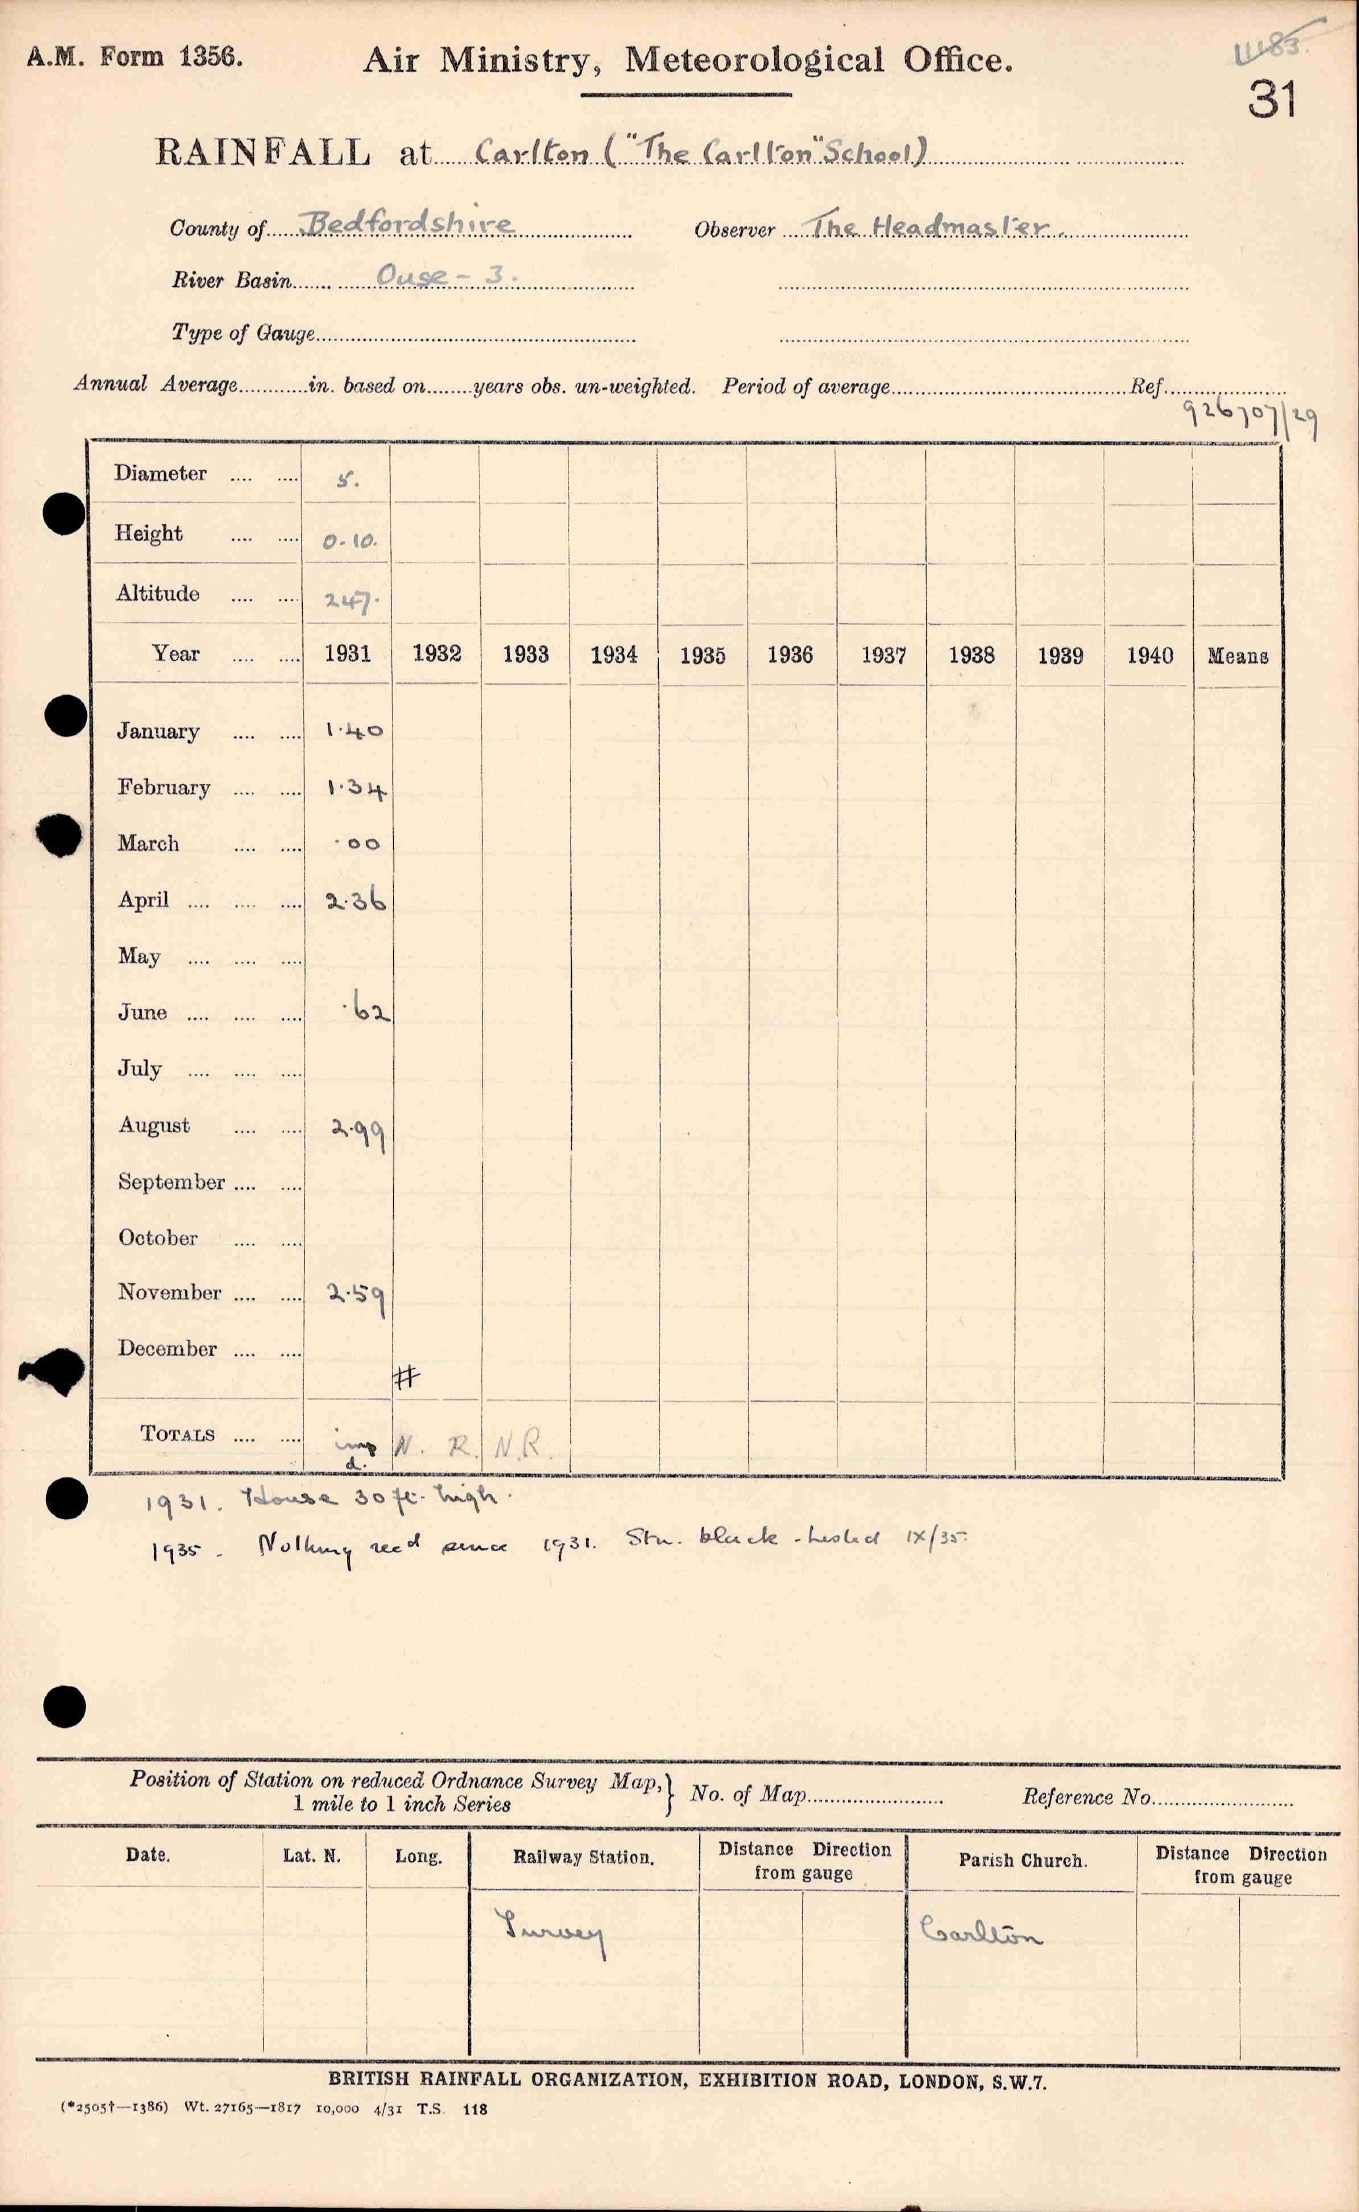 A.M. Form 1356.
Air Ministry, Meteorological Office.
31
RAINFALL at Carlton ("The Carlton" School)
County of Bedfordshire Observer The Headmaster.
River Basin Ouse - 3.
Type of Gauge
Annual Average in. based on years obs. un-weighted. Period of average Ref.
926707/29
Diameter 5.
Height 0.10.
Altitude 247.
Year 1931 1932 1933 1934 1935 1936 1937 1938 1939 1940 Means
January 1.40
February 1.34
March .00
April 2.36
May
June .62
July
August 2.99
September
October
November 2.59
December
#
TOTALS impd. N. R. N.R.
1931. House 30 ft. high.
1935. Nothing recd since 1931. Stn. black-listed IX/35.
Position of Station on reduced Ordnance Survey Map, } No. of Map Reference No.
1 mile to 1 inch Series
Date. Lat. N. Long. Railway Station. Distance Direction from gauge Parish Church. Distance Direction from gauge
Turvey Carlton
BRITISH RAINFALL ORGANIZATION, EXHIBITION ROAD, LONDON, S.W.7.
(*2505†—1386) Wt. 27165—1817 10,000 4/31 T.S. 118